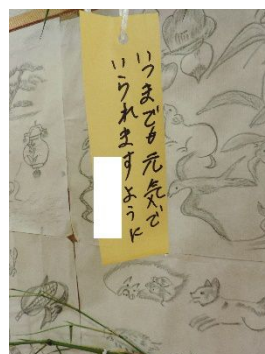 いつまでも元気で
いられますように